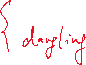 { dangling